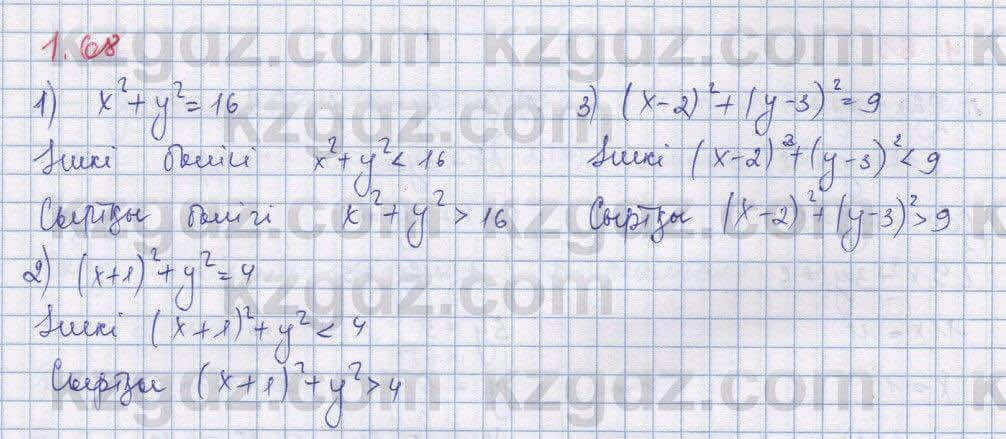 1.68
1) x² + y² = 16
Ішкі бөлігі x² + y² < 16
Сыртқы бөлігі x² + y² > 16
2) (x+1)² + y² = 4
Ішкі (x+1)² + y² < 4
Сыртқы (x+1)² + y² > 4
3) (x-2)² + (y-3)² = 9
Ішкі (x-2)² + (y-3)² < 9
Сыртқы (x-2)² + (y-3)² > 9
kzgdz.com kzgdz.com
kzgdz.com kzgdz.com
kzgdz.com kzgdz.com
kzgdz.com
kzgdz.com kzgdz.com